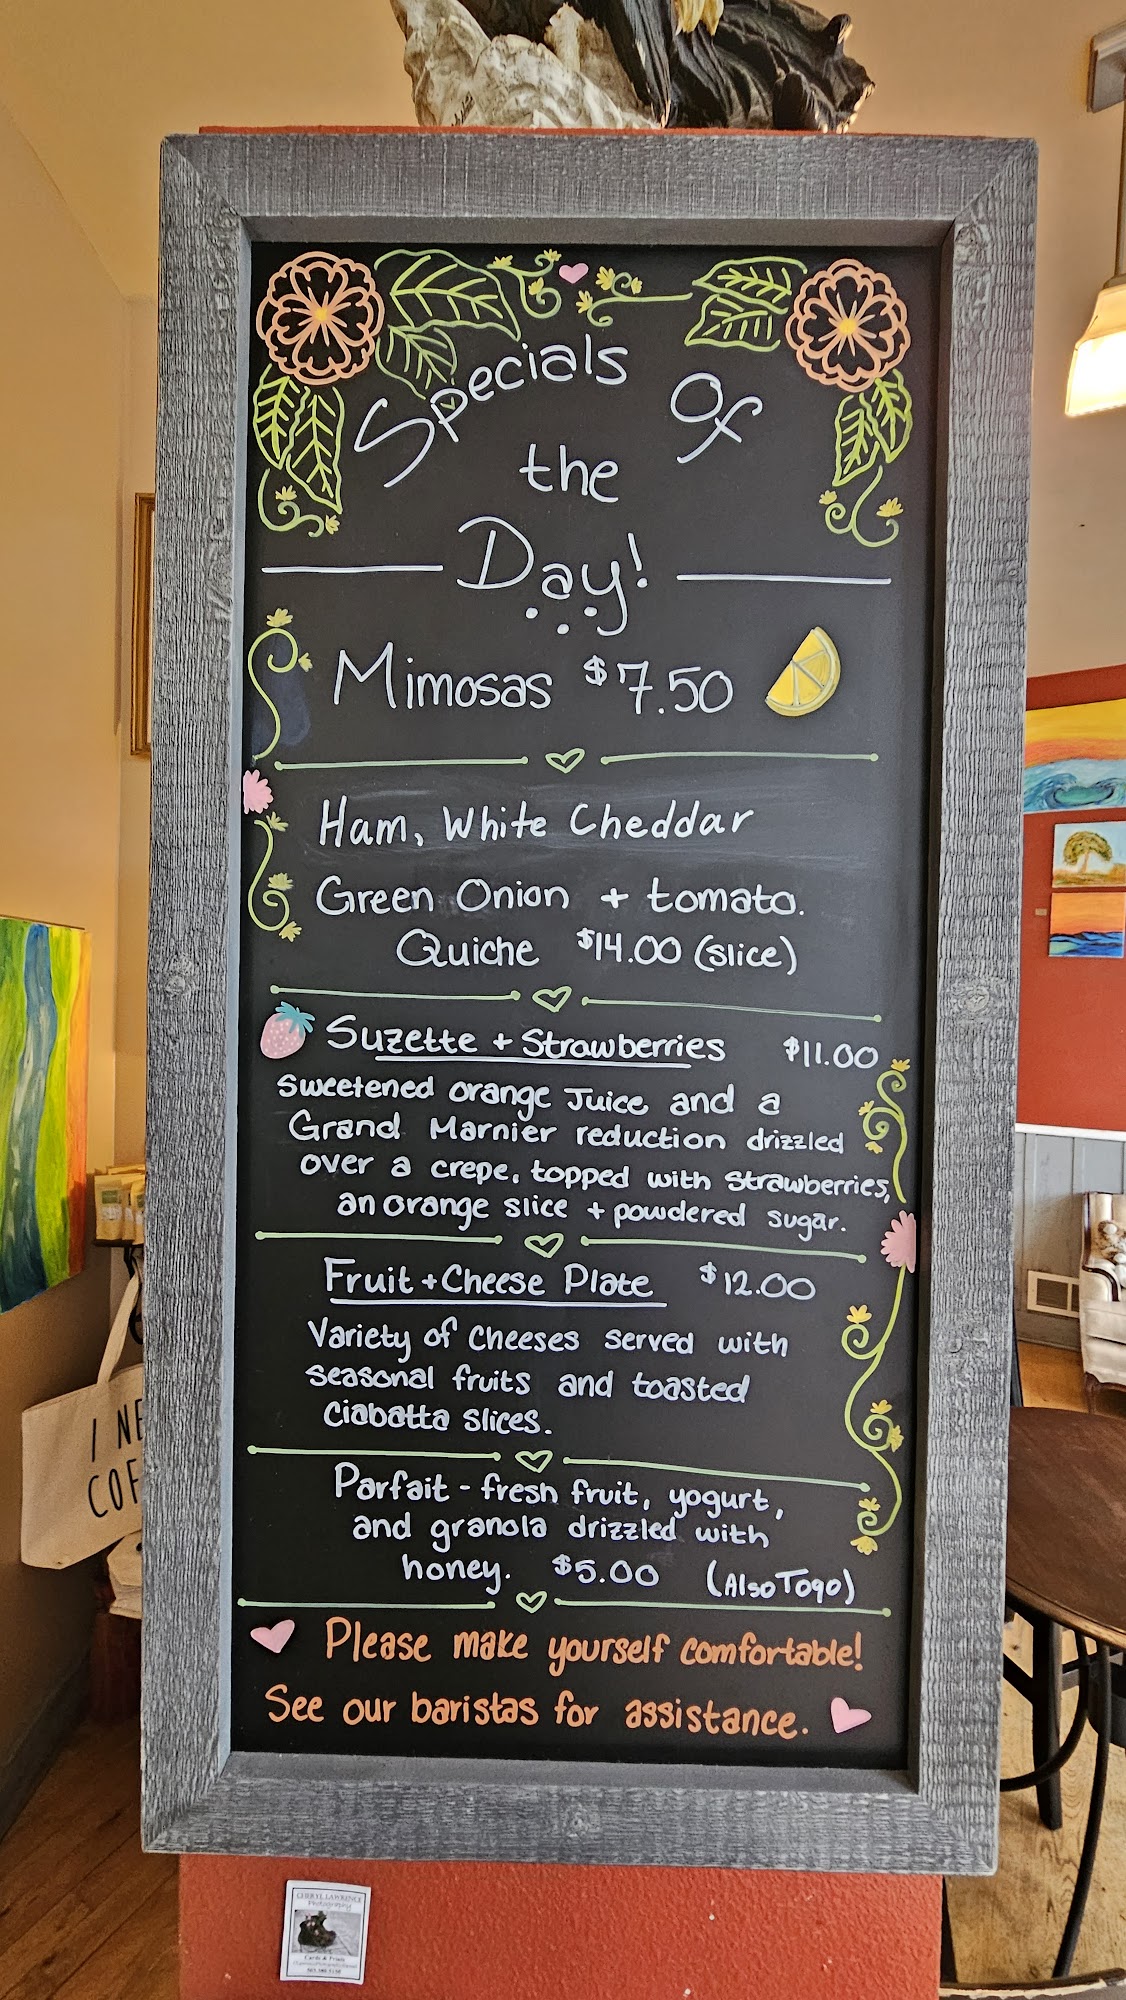 Specials Of
the
Day!
Mimosas $7.50
Ham, White Cheddar
Green Onion + tomato.
Quiche $14.00 (slice)
Suzette + Strawberries $11.00
Sweetened orange Juice and a
Grand Marnier reduction drizzled
over a crepe, topped with strawberries,
an orange slice + powdered sugar.
Fruit + Cheese Plate $12.00
Variety of cheeses served with
seasonal fruits and toasted
Ciabatta slices.
Parfait - fresh fruit, yogurt,
and granola drizzled with
honey. $5.00 (Also Togo)
Please make yourself comfortable!
See our baristas for assistance.
I NE
COF
CHERYL LAWRENCE
Photography
Cards & Prints